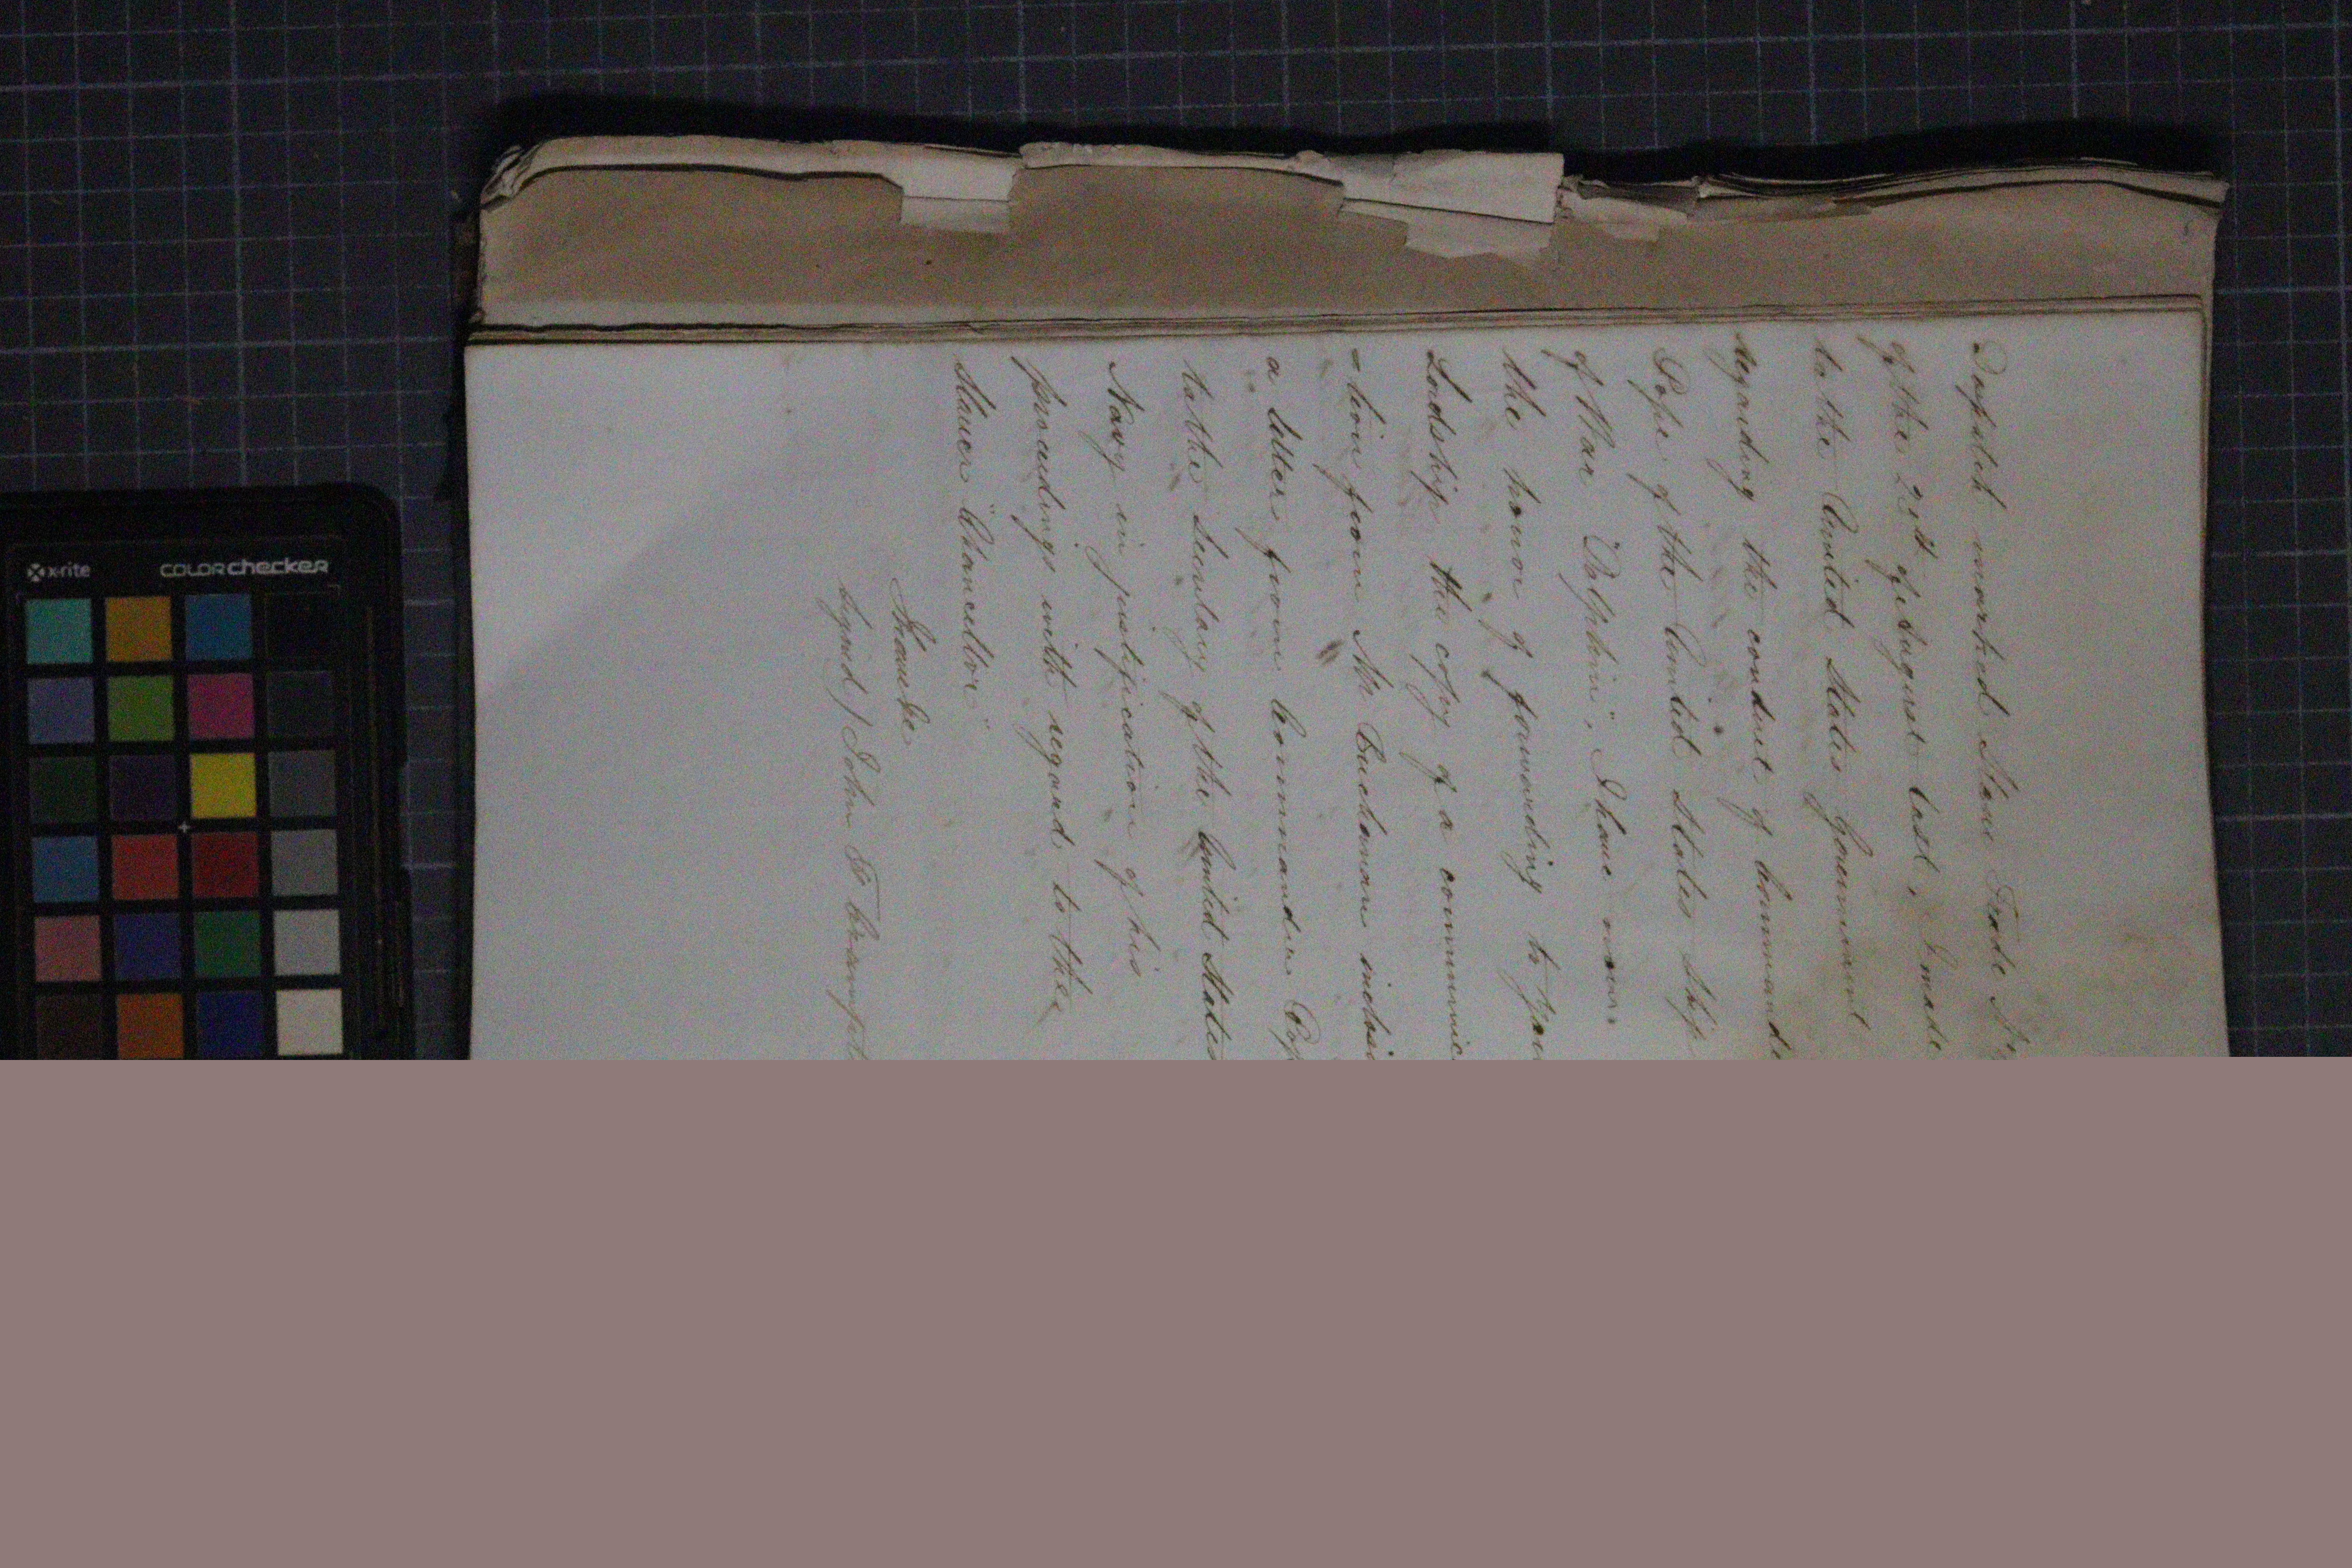 Despatch marked Slave Trade
of the 28th of August last, I made
to the United States Government
regarding the conduct of
Pope of the United States Ship
of War "Dolphin". I have
the honor of forwarding to
Lordship the copy of a
-tion from Mr Buchanan
a letter from Commander
to the Secretary of the United States
Navy in justification of his
proceedings with regard to the
Slaver "Chancellor"
I have &c
signed / John F.
x-rite
COLORchecker